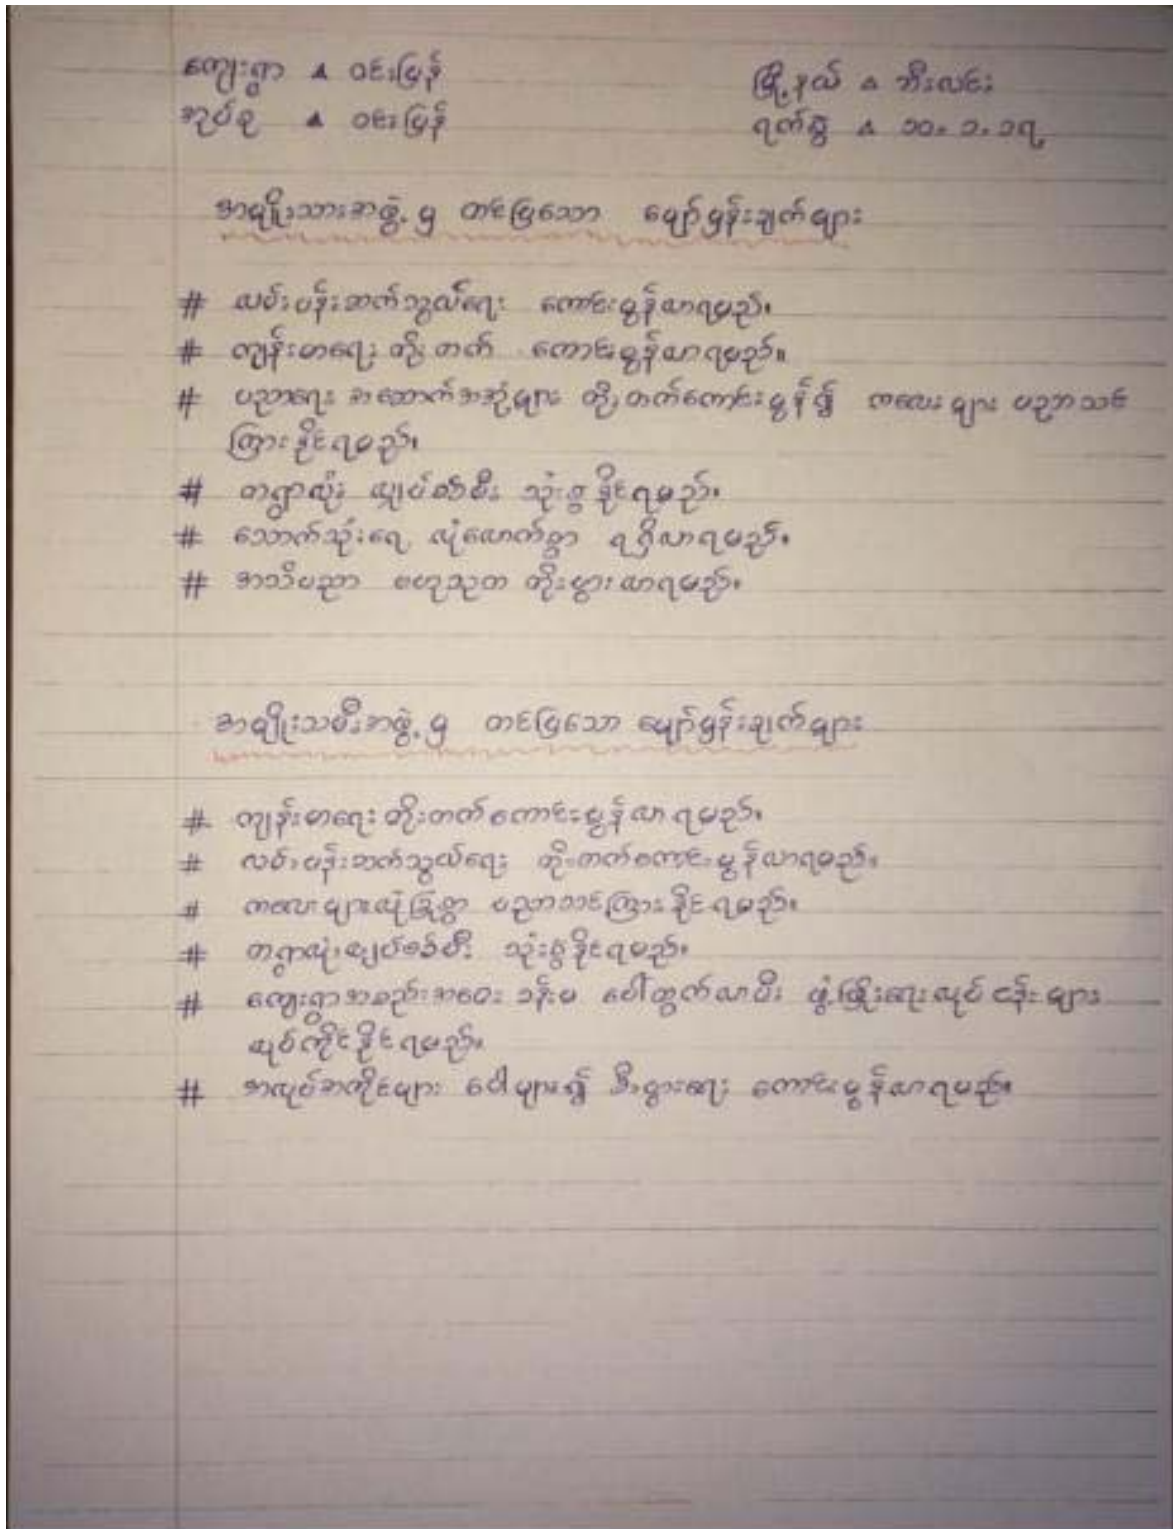 ကျေးရွာ ▲ ဝင်းပြန် မြို့နယ် ▲ ဘီးလင်း
အုပ်စု ▲ ဝင်းပြန် ရက်စွဲ ▲ ၁၀.၁.၁၇
အမျိုးသားအဖွဲ့မှ တင်ပြသော မျှော်မှန်းချက်များ
# လမ်းပန်းဆက်သွယ်ရေး ကောင်းမွန်လာရမည်။
# ကျန်းမာရေး တိုးတက် ကောင်းမွန်လာရမည်။
# ပညာရေး အဆောက်အအုံများ တိုးတက်ကောင်းမွန်၍ ကလေးများ ပညာသင်
ကြားနိုင်ရမည်။
# တရွာလုံး လျှပ်စစ်မီး သုံးစွဲနိုင်ရမည်။
# သောက်သုံးရေ လုံလောက်စွာ ရရှိလာရမည်။
# အသိပညာ ဗဟုသုတ တိုးပွားလာရမည်။
အမျိုးသမီးအဖွဲ့မှ တင်ပြသော မျှော်မှန်းချက်များ
# ကျန်းမာရေးတိုးတက်ကောင်းမွန်လာရမည်။
# လမ်းပန်းဆက်သွယ်ရေး တိုးတက်ကောင်းမွန်လာရမည်။
# ကလေးများလုံခြုံစွာ ပညာသင်ကြားနိုင်ရမည်။
# တရွာလုံးလျှပ်စစ်မီး သုံးစွဲနိုင်ရမည်။
# ကျေးရွာအစည်းအဝေးခန်းမ ပေါ်ထွက်လာပြီး ဖွံ့ဖြိုးရေးလုပ်ငန်းများ
လုပ်ကိုင်နိုင်ရမည်။
# အလုပ်အကိုင်များ ပေါများ၍ စီးပွားရေး ကောင်းမွန်လာရမည်။